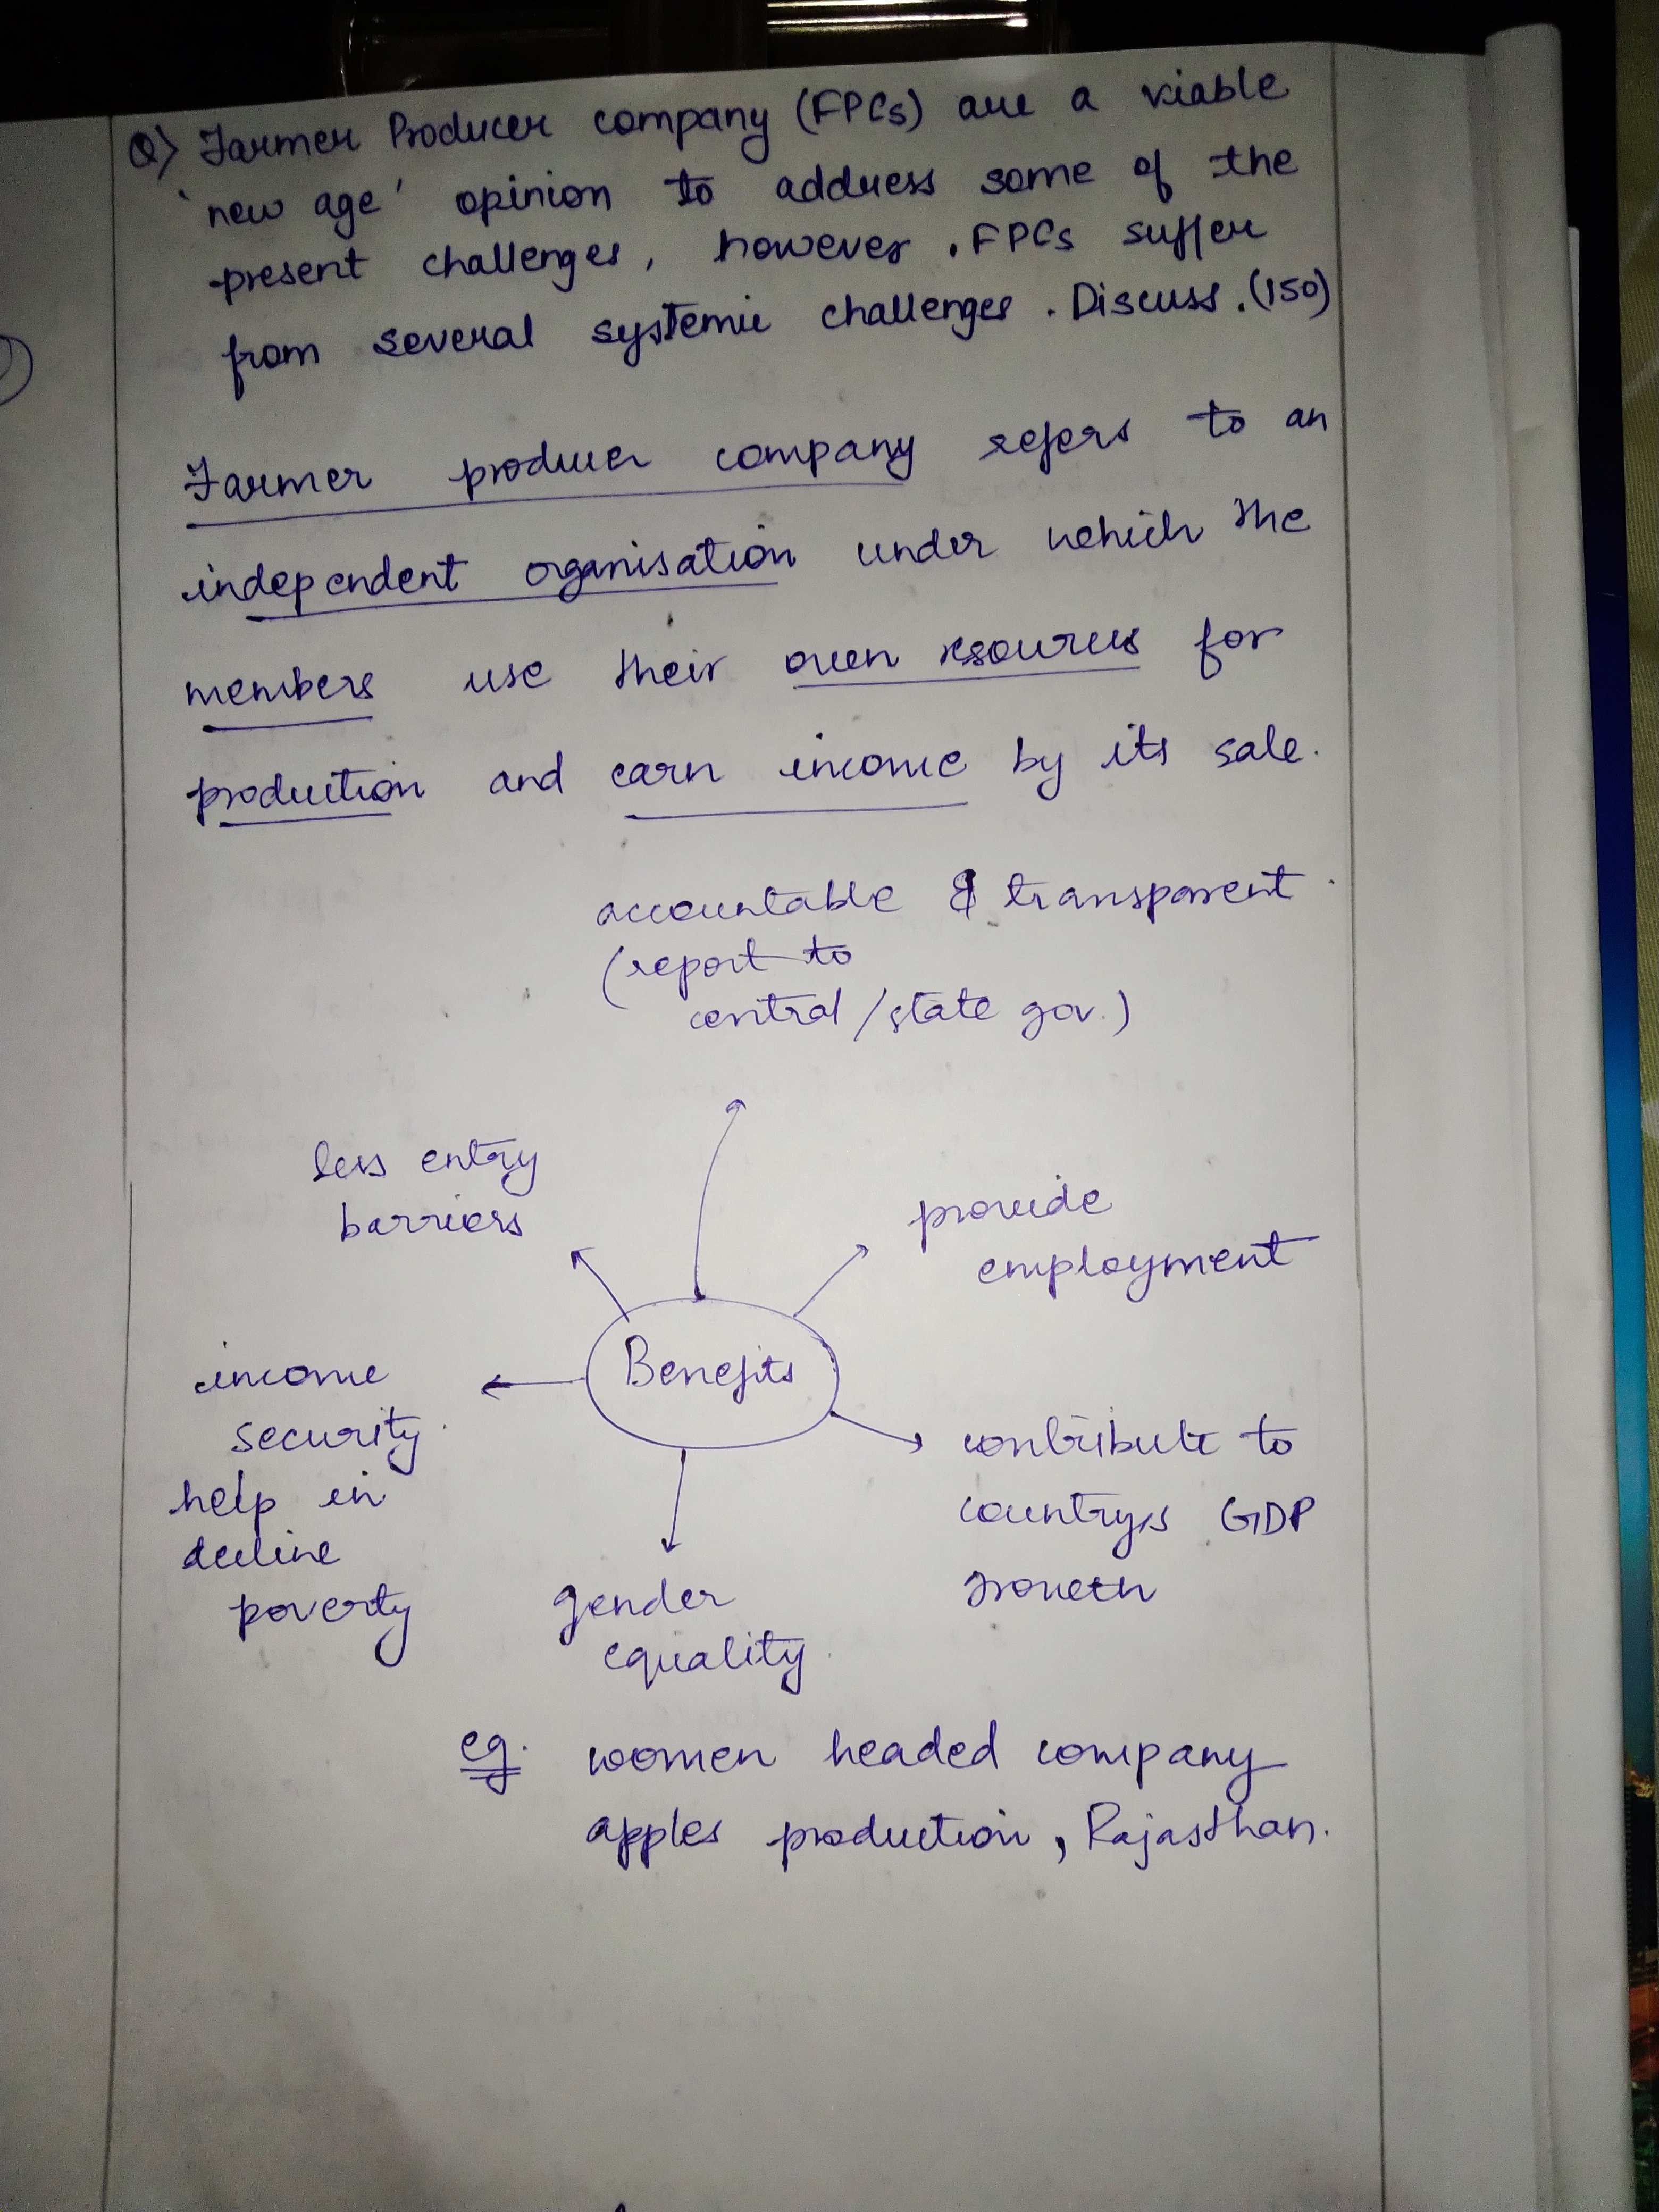 Q) Farmer Producer company (FPCs) are a viable
'new age' opinion to address some of the
present challenges, however, FPCs suffer
from several systemic challenges. Discuss. (150)
Farmer producer company refers to an
independent organisation under which the
members use their own resources for
production and earn income by its sale.
accountable & transparent
(report to
central/state gov.)
less entry
barriers
provide
employment
Benefits
income
security
help in
decline
poverty
contribute to
country's GDP
growth
gender
equality
eg. women headed company
apples production, Rajasthan.